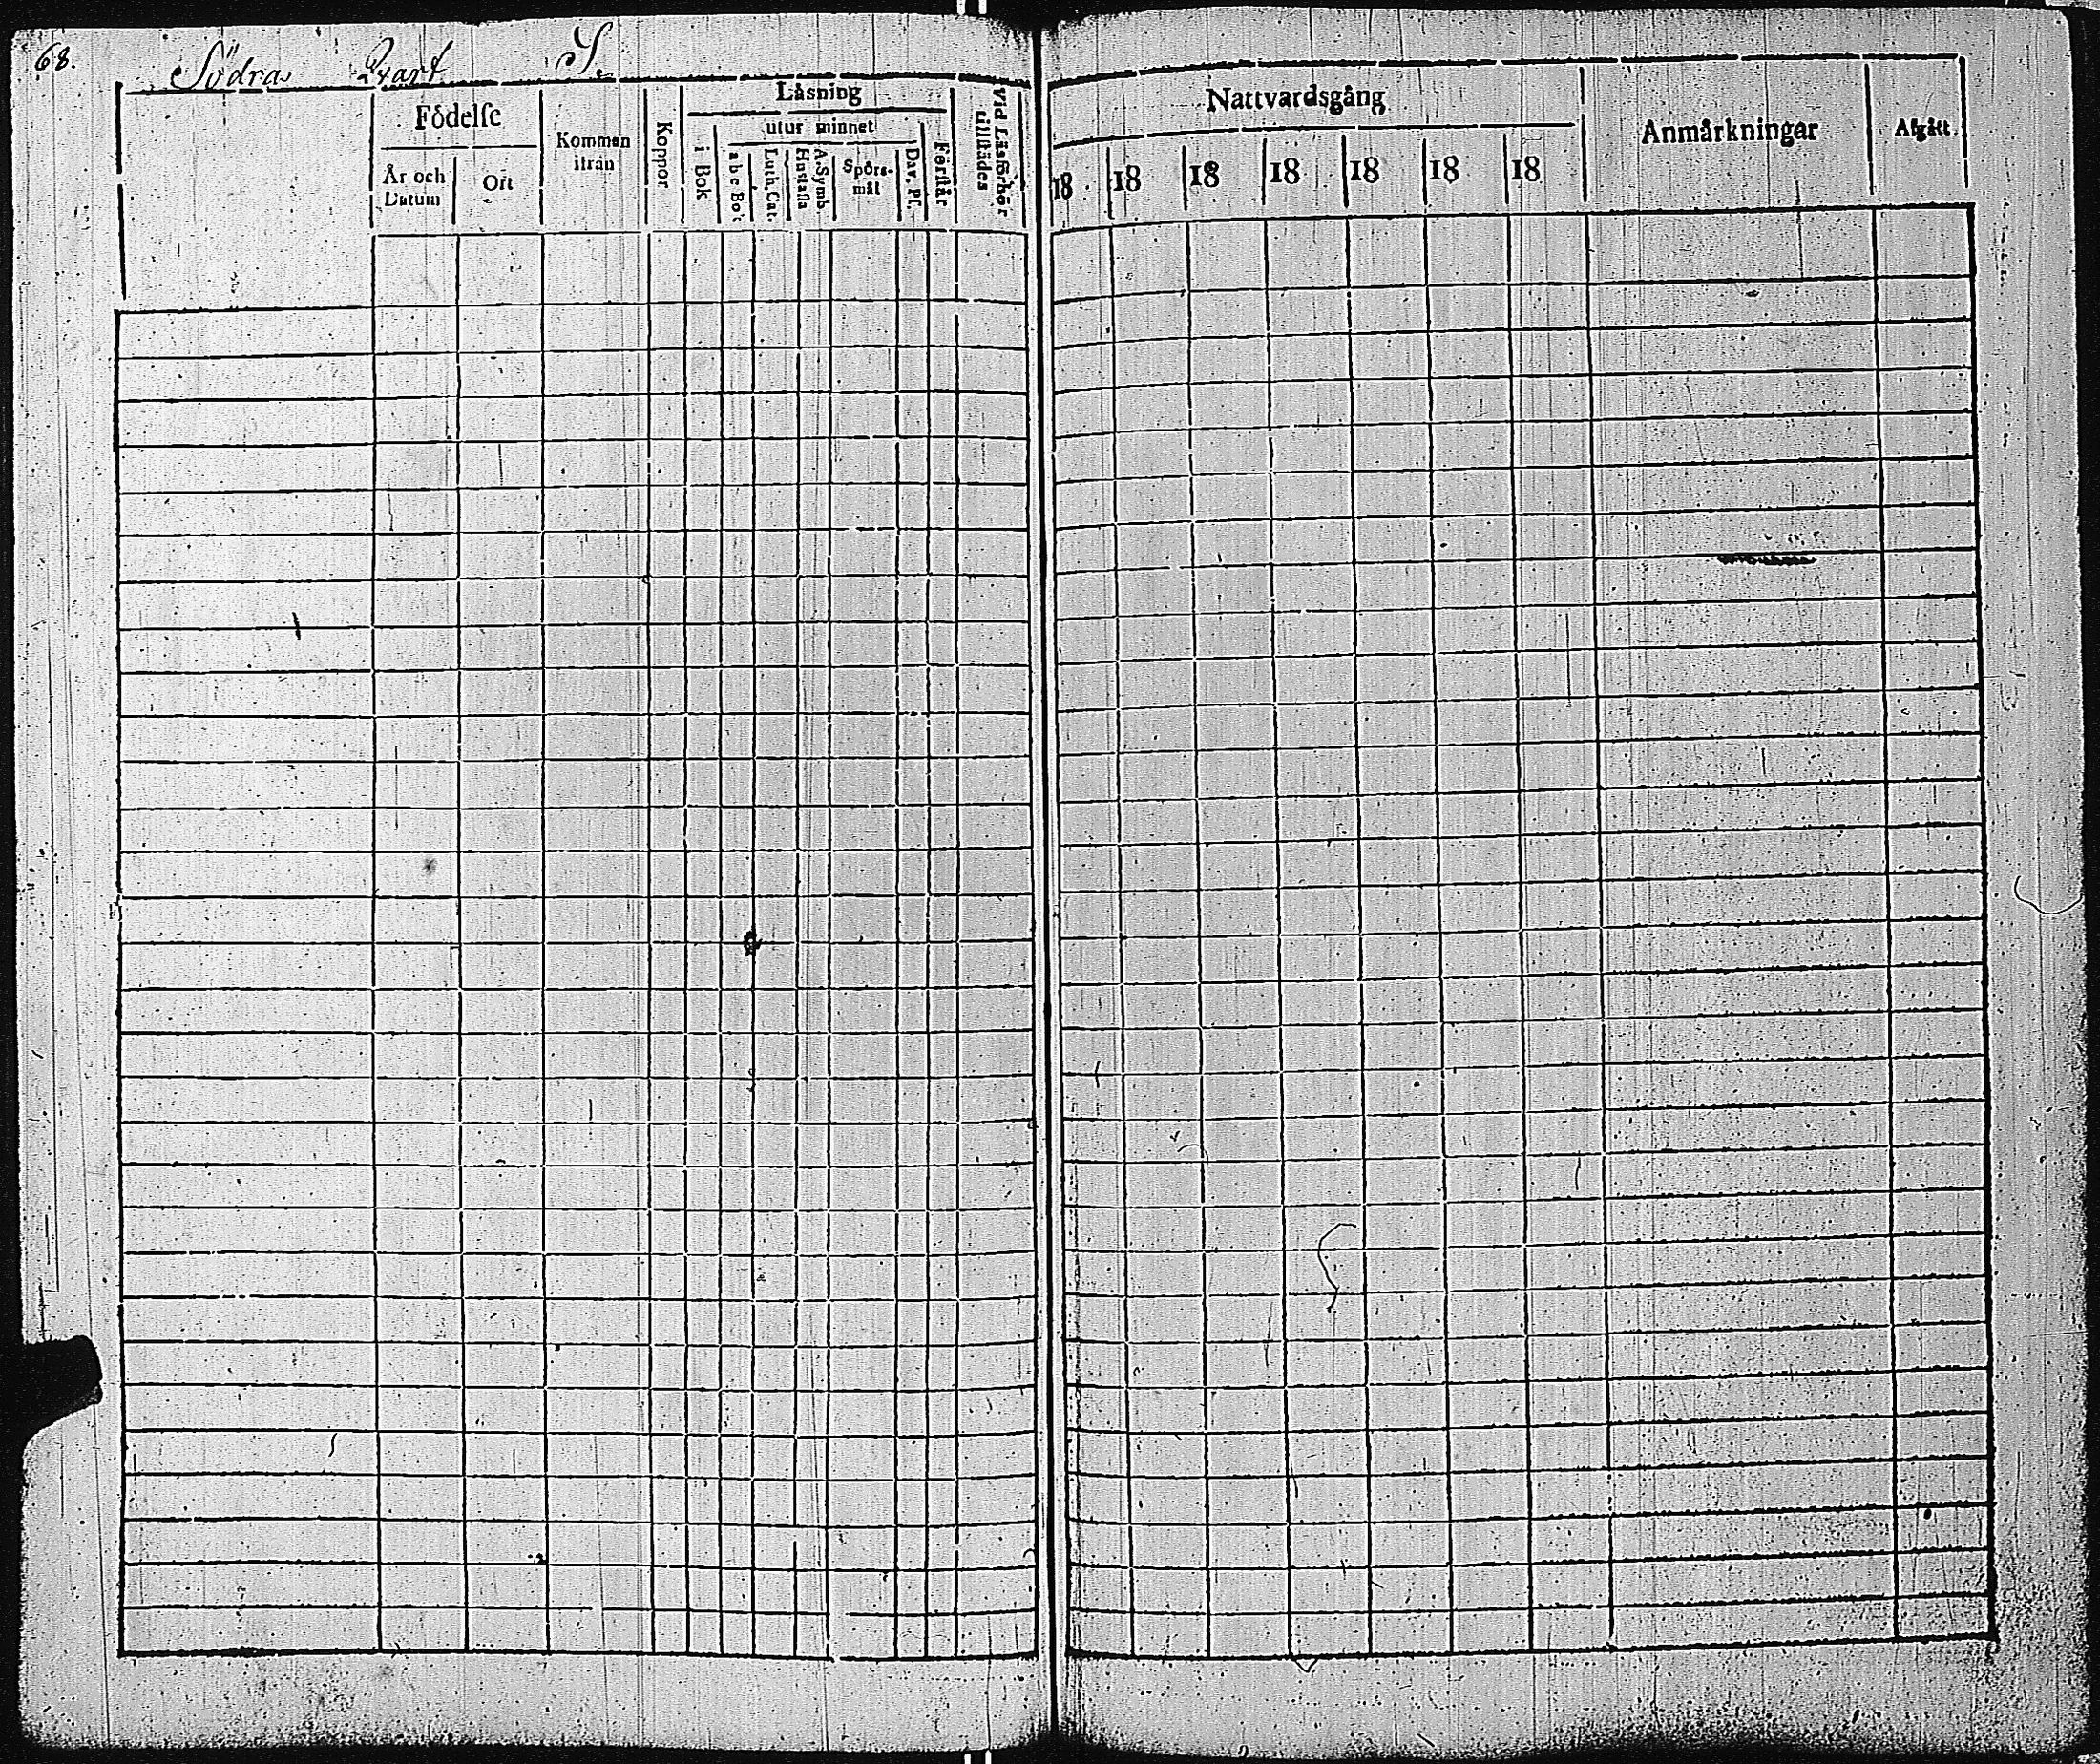 68.
Södra Qvart S.
Födelse
År och Datum
Ort
Kommen ifrån
Koppor
Läsning
i Bok
utur minnet
abc Bok
Luth. Cat.
A. Symb.
Hustafla
Spörsmål
Dav. Ps.
Förstår
Vid Läsförhör tillstädes
Nattvardsgång
18 18 18 18 18 18 18
Anmärkningar
Afgått.